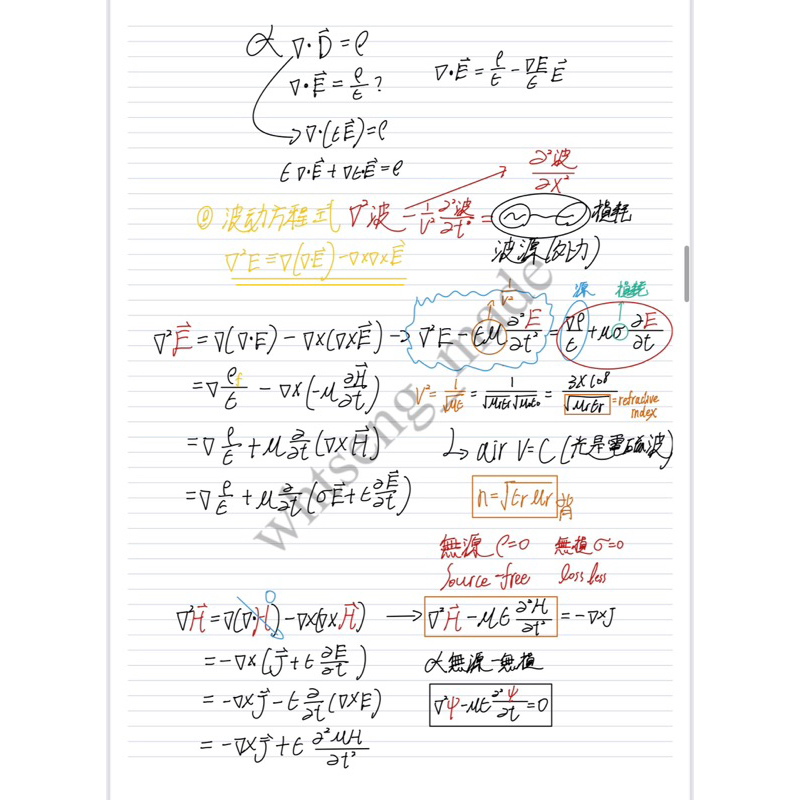 α ∇·D⃗ = ρ
∇·E⃗ = ρ/ε ?
∇·E⃗ = ρ/ε - ∇E/ε E⃗
→ ∇·(εE⃗) = ρ
ε∇·E⃗ + ∇ε·E⃗ = ρ
∂²波/∂x²
② 波动方程式 ∇²波 - 1/V² ∂²波/∂t² = 損耗
波源(外力)
∇²E = ∇(∇·E⃗) - ∇×∇×E⃗
1/V² 源 損耗
∇²E⃗ = ∇(∇·E) - ∇×(∇×E⃗) → ∇²E - εμ ∂²E/∂t² = ∇ρ/ε + μσ ∂E/∂t
= ∇ ρf/ε - ∇×(-μ ∂H⃗/∂t)
V² = 1/√με = 1/√μrεr √μ0ε0 = 3×10⁸/√μrεr = refractive index
= ∇ ρ/ε + μ ∂/∂t (∇×H⃗)
↳ air V=C (光是電磁波)
= ∇ ρ/ε + μ ∂/∂t (σE⃗ + ε ∂E⃗/∂t)
n = √εrμr 背
無源 ρ=0 無損 σ=0
source-free lossless
∇²H⃗ = ∇(∇·H⃗) 0 - ∇×(∇×H⃗) → ∇²H⃗ - με ∂²H/∂t² = -∇×J
= -∇×(J⃗ + ε ∂E/∂t)
α 無源 無損
= -∇×J⃗ - ε ∂/∂t (∇×E)
∇²ψ - με ∂²ψ/∂t = 0
= -∇×J⃗ + ε ∂²μH/∂t²
whtseng_made